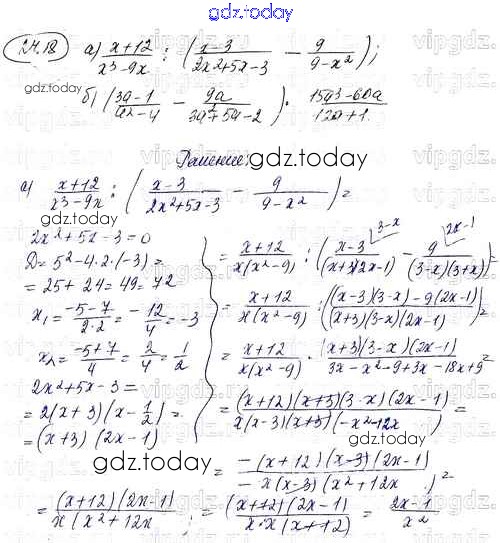 gdz.today
24.18 а) x+12/x³-9x : (x-3/2x²+5x-3 - 9/9-x²);
gdz.today
б) (3a-1/a²-4 - 9a/3a²+5a-2) · 15a³-60a/12a+1
Решение:
gdz.today
а) x+12/x³-9x : (x-3/2x²+5x-3 - 9/9-x²) =
gdz.today
2x²+5x-3=0
D=5²-4·2·(-3)=
=25+24=49=7²
x₁=-5-7/2·2=-12/4=-3
x₂=-5+7/4=2/4=1/2
2x²+5x-3=
=2(x+3)(x-1/2)=
=(x+3)(2x-1)
= x+12/x(x²-9) : (x-3/(x+3)(2x-1) - 9/(3-x)(3+x)) =
3-x 2x-1
= x+12/x(x²-9) : ((x-3)(3-x)-9(2x-1)/(x+3)(3-x)(2x-1)) =
= x+12/x(x²-9) · (x+3)(3-x)(2x-1)/3x-x²-9+3x-18x+9 =
= (x+12)(x+3)(3-x)(2x-1)/x(x-3)(x+3)(-x²-12x) =
gdz.today
= -(x+12)(x-3)(2x-1)/-x(x-3)(x²+12x) =
= (x+12)(2x-1)/x(x²+12x) = (x+12)(2x-1)/x·x(x+12) = 2x-1/x²
gdz.today